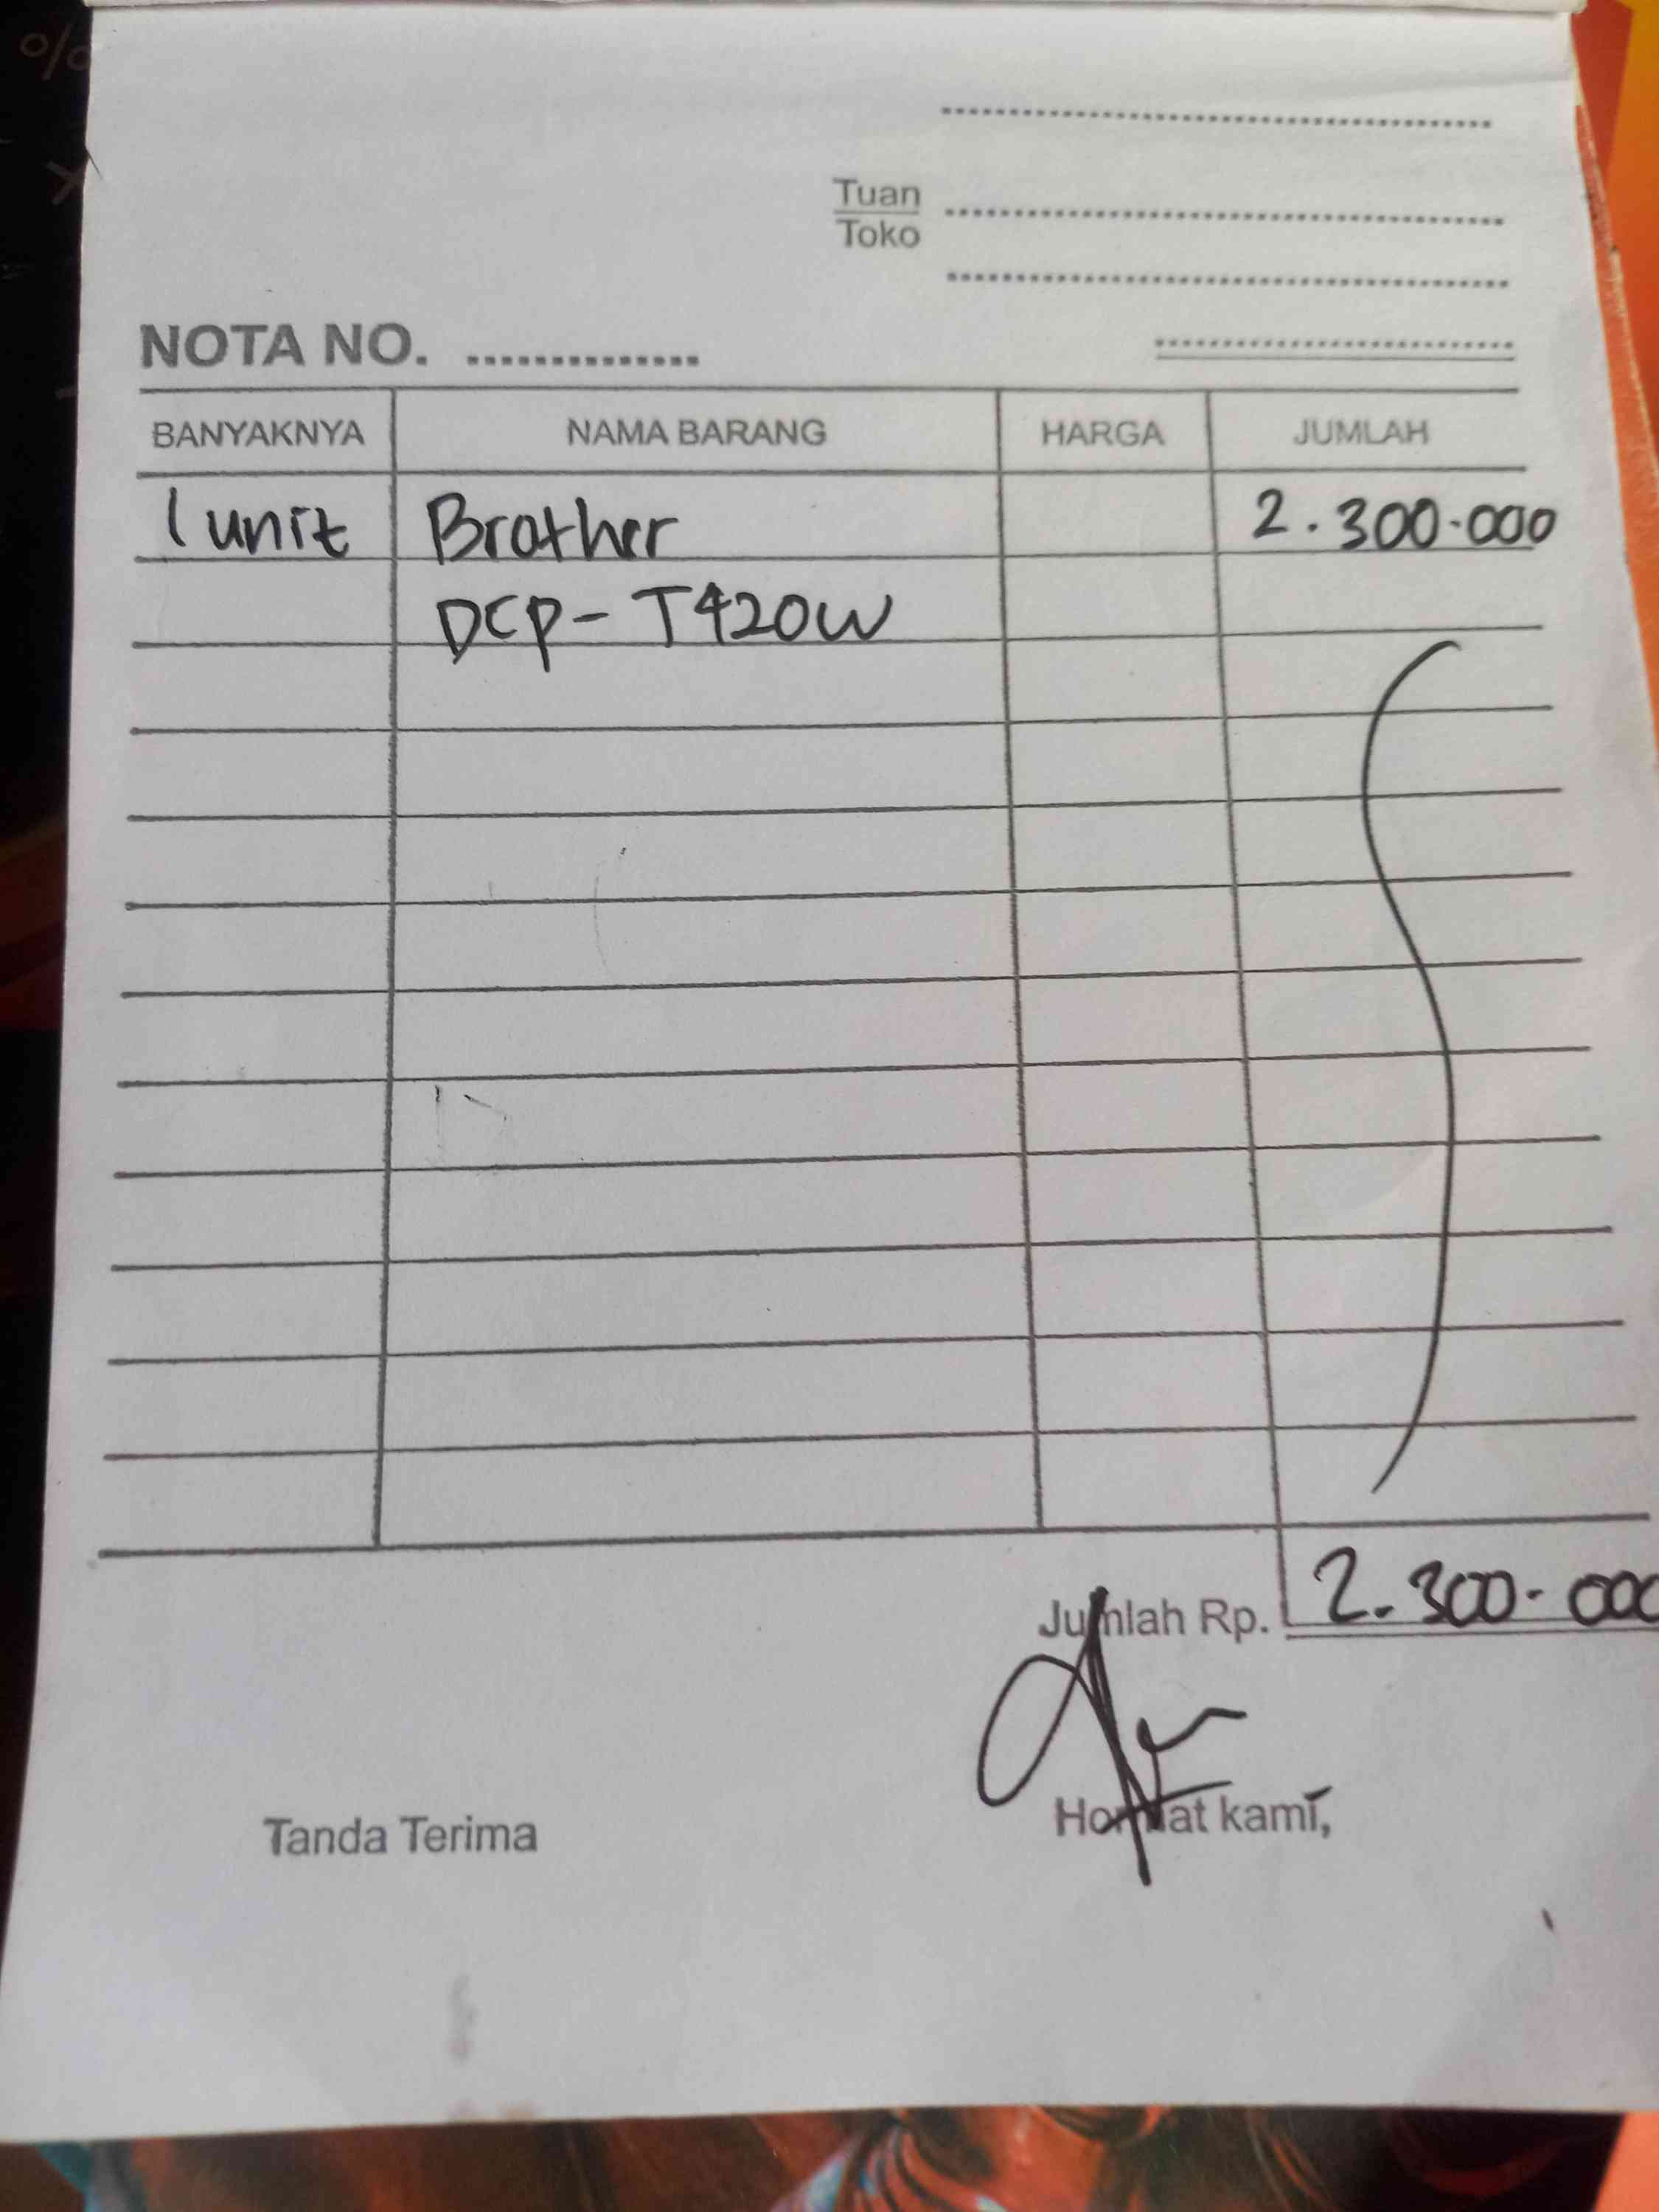 Tuan
Toko
NOTA NO. ..............
BANYAKNYA NAMA BARANG HARGA JUMLAH
1 unit Brother 2.300.000
DCP-T420W
Jumlah Rp. 2.300.000
Tanda Terima Hormat kami,